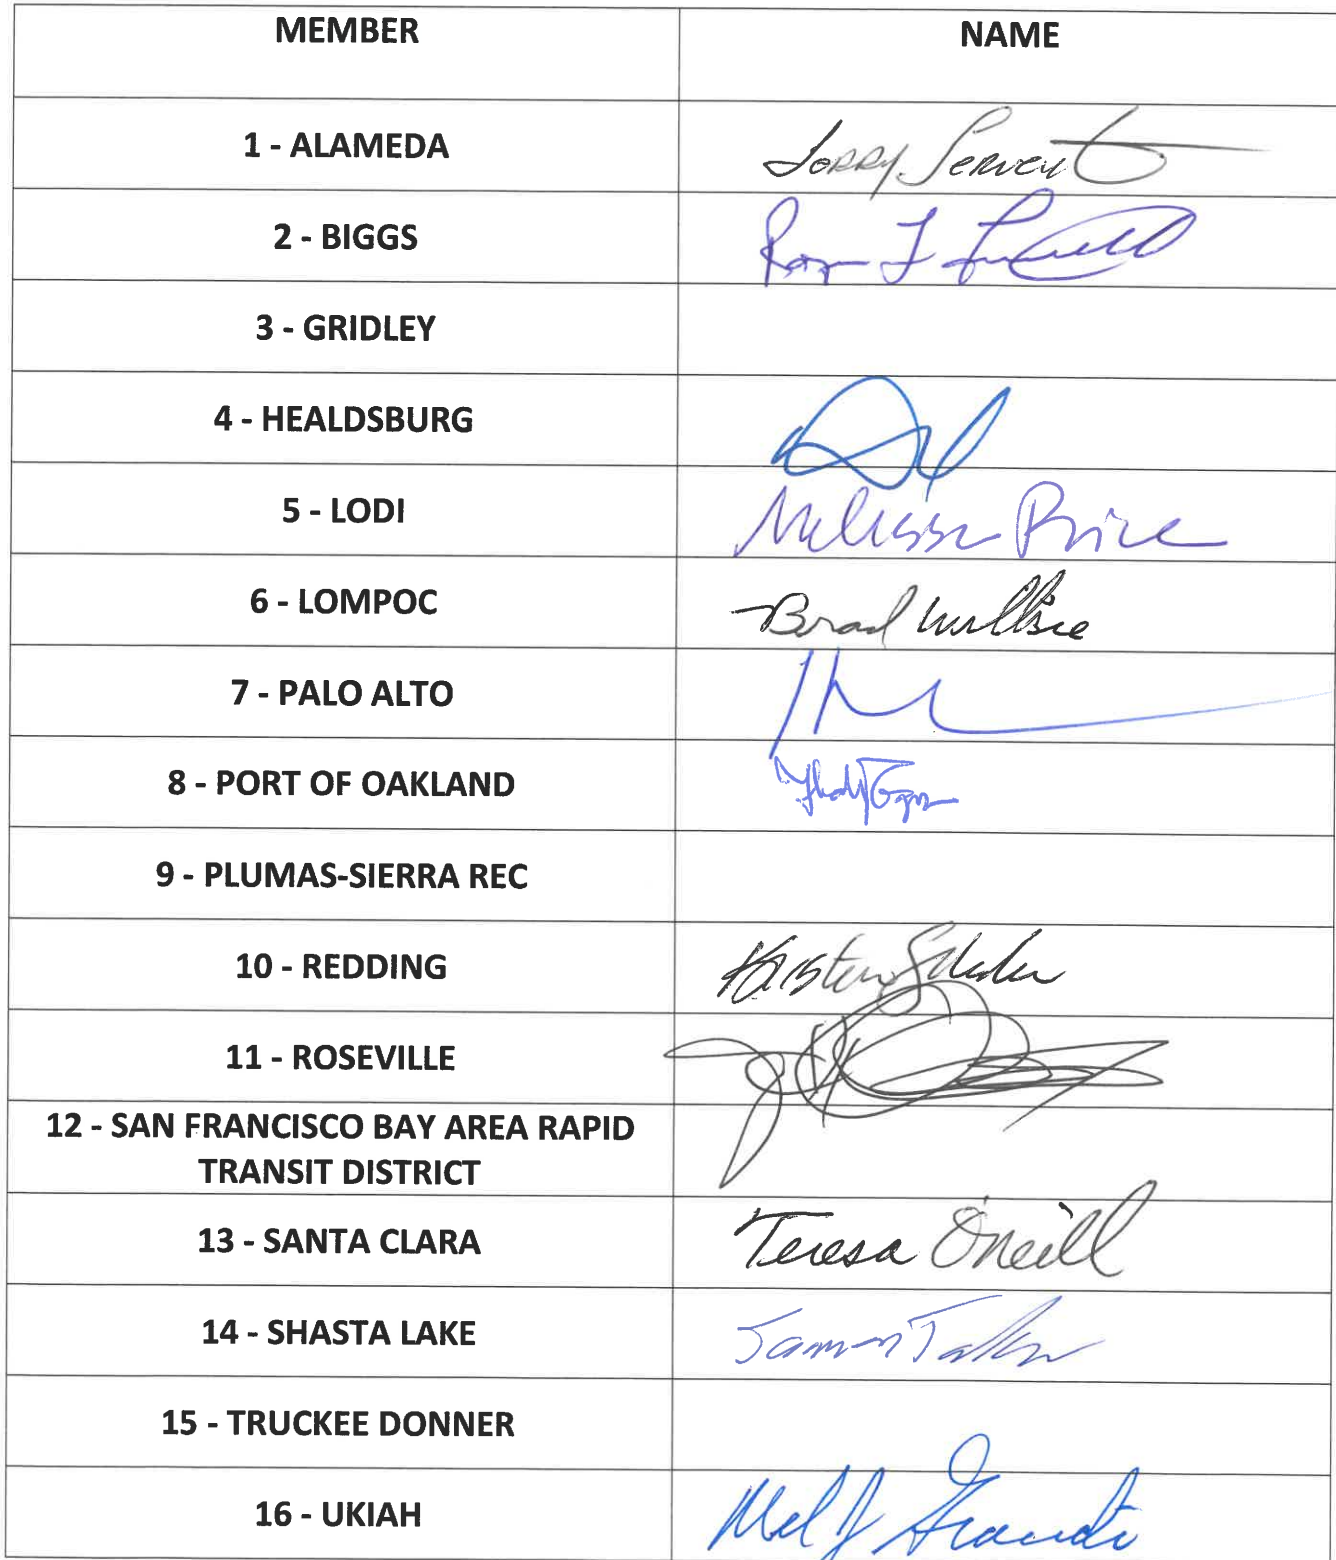 MEMBER NAME
1 - ALAMEDA
2 - BIGGS
3 - GRIDLEY
4 - HEALDSBURG
5 - LODI Melissa Price
6 - LOMPOC Brad Willie
7 - PALO ALTO
8 - PORT OF OAKLAND
9 - PLUMAS-SIERRA REC
10 - REDDING Kristen
11 - ROSEVILLE
12 - SAN FRANCISCO BAY AREA RAPID
TRANSIT DISTRICT
13 - SANTA CLARA Teresa O'Neill
14 - SHASTA LAKE
15 - TRUCKEE DONNER
16 - UKIAH Mel J Grandi